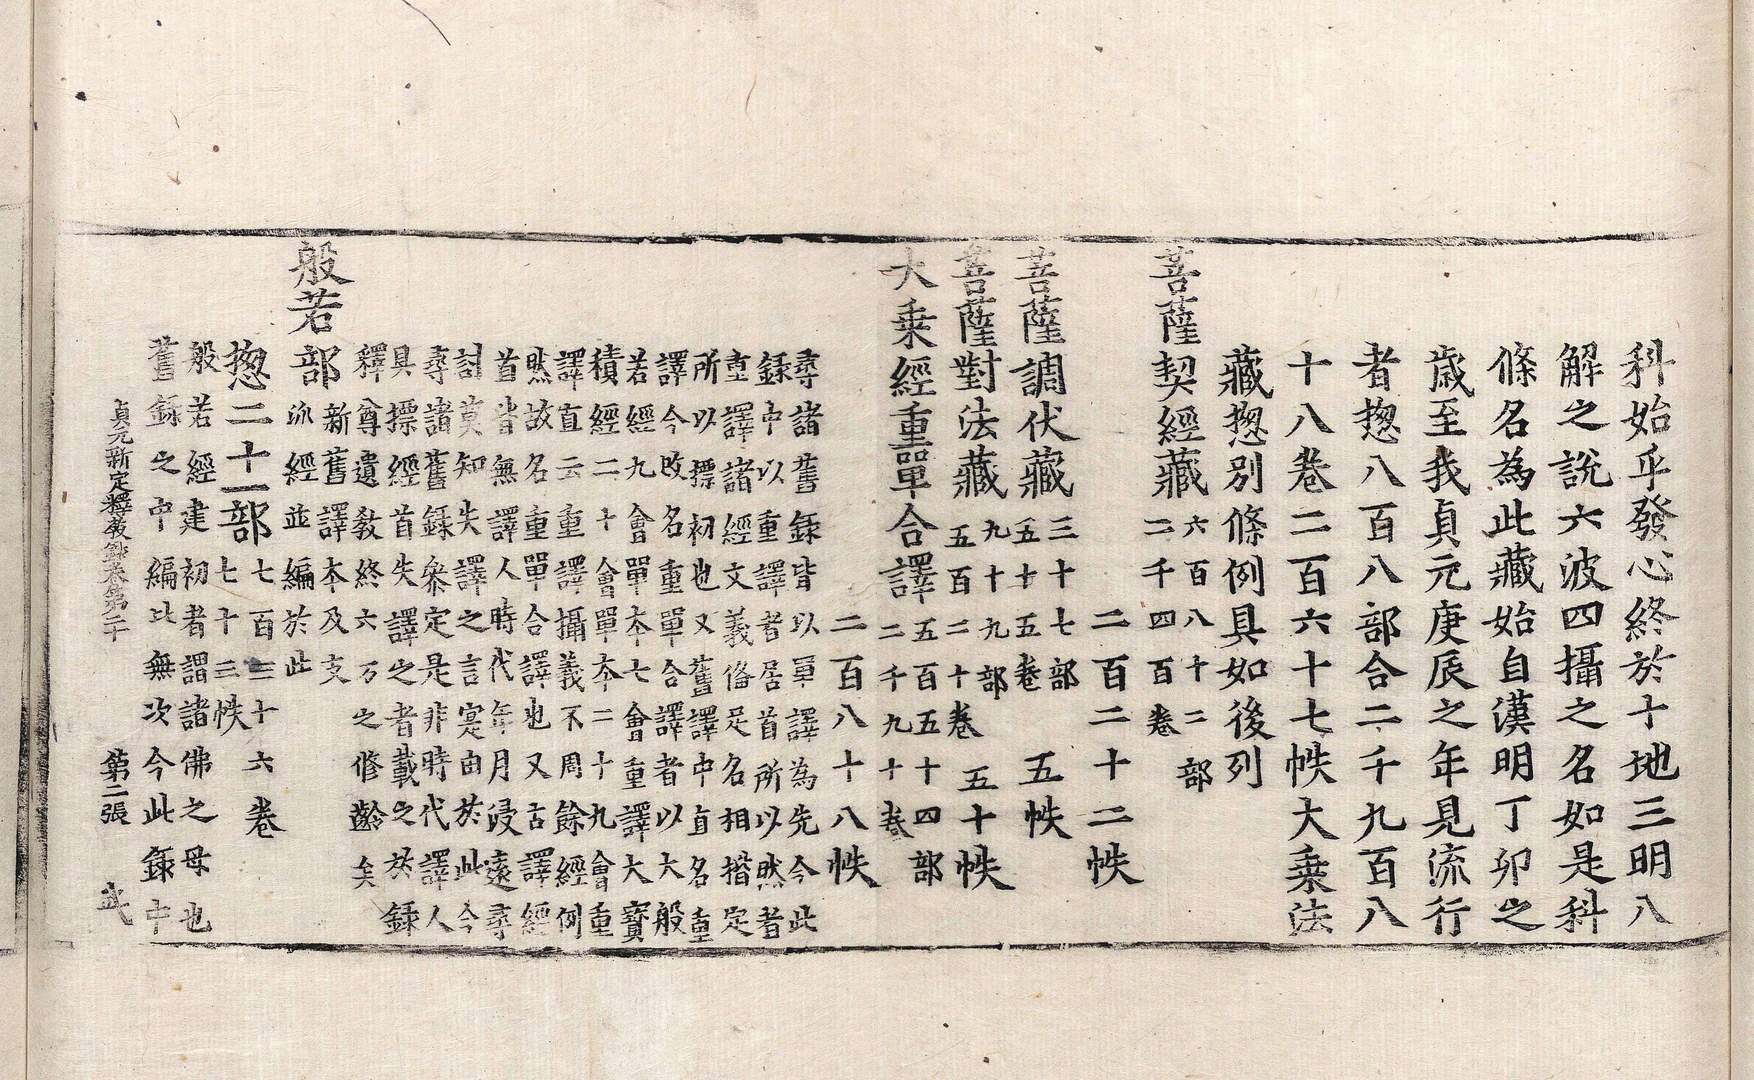 科始乎發心終於十地三明八
解之說六波四攝之名如是科
條名為此藏始自漢明丁卯之
歲至我貞元庚辰之年見流行
者揔八百八部合二千九百八
十八卷二百六十七帙大乘法
藏揔別條例具如後列
菩薩契經藏 六百八十二部
二千四百卷
二百二十二帙
菩薩調伏藏 三十七部
五十五卷 五帙
菩薩對法藏 九十九部
五百二十卷 五十帙
大乘經重單合譯 五百五十四部
二千九十卷
二百八十八帙
尋諸舊録皆以單譯為先今此
録中以重譯者居首所以然者
重譯諸經文義俻足名相揩定
所以摽初也又舊譯中直名重
譯今改名重單合譯者以大般
若經九會單本七會重譯大寳
積經二十會單本二十九會重
譯直云重譯攝義不周餘經例
然故名重單合譯也又古譯經
首皆無譯人時代年月浸遠尋
討莫知失譯之言寔由於此今
尋諸舊録叅定是非時代譯人
具摽經首失譯之者載之於録
釋尊遺教終六万之修齡矣
般若部 新舊譯本及支
泒經並編於此
揔二十一部 七百三十六卷
七十三帙
般若經建初者謂諸佛之母也
舊録之中編比無次今此録中
貞元新定釋教録卷第二十 第二張 武